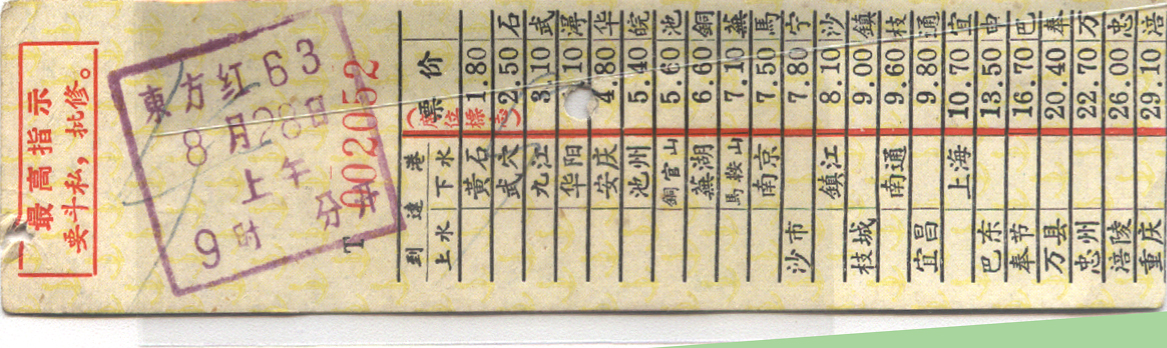 最高指示
要斗私，批修。
東方红63
8月28日
上午
9时 分
T 002052
到達港 票价
上水 下水 (座位標志)
黃石 1.80
武穴 2.50 石
九江 3.10 武
华阳 10 潯
安庆 4.80 华
池州 5.40 皖
銅官山 5.60 池
蕪湖 6.60 銅
馬鞍山 7.10 蕪
南京 7.50 馬
沙市 7.80 宁
鎮江 8.10 沙
枝城 9.00 鎮
南通 9.60 枝
宜昌 9.80 通
上海 10.70 宜
巴东 13.50 申
奉节 16.70 巴
万县 20.40 奉
忠州 22.70 万
涪陵 26.00 忠
重庆 29.10 涪